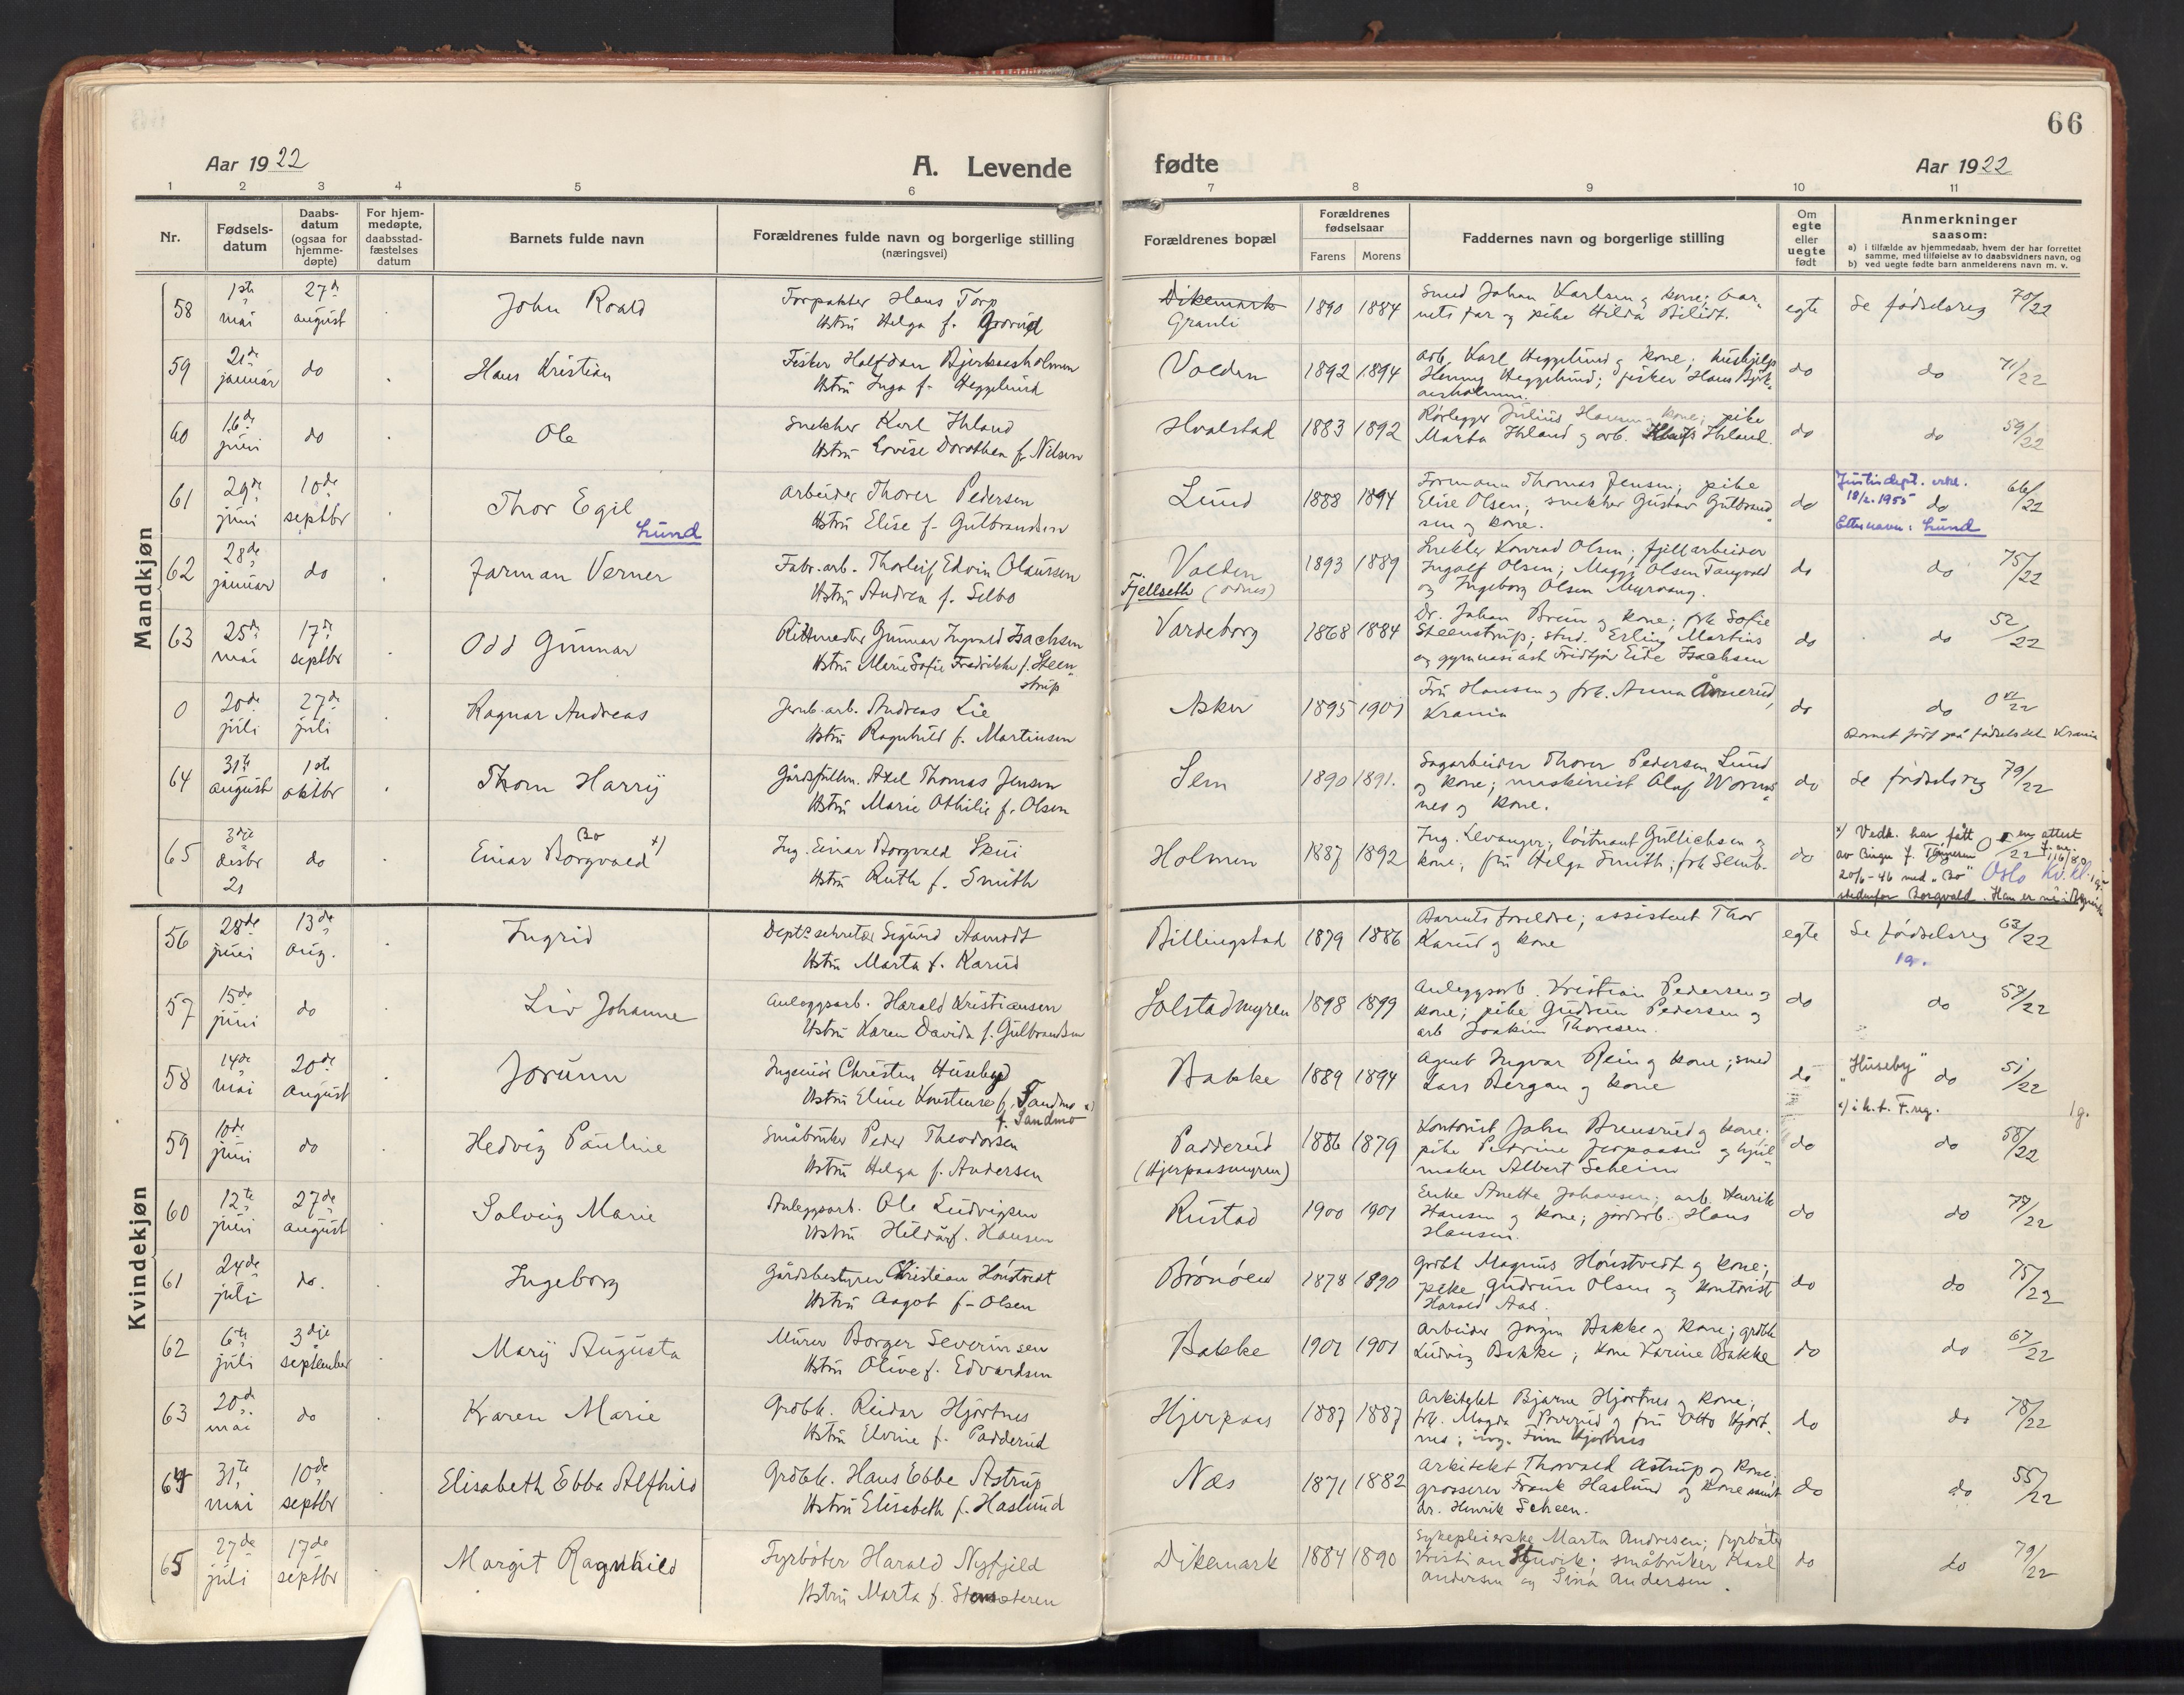 66
Aar 1922
A. Levende
fødte
Aar 1922
1 2 3 4 5 6 7 8 9 10 11
Nr.
Fødsels-
datum
Daabs-
datum
(ogsaa for
hjemme-
døpte)
For hjem-
medøpte,
daabsstad-
fæstelses
datum
Barnets fulde navn
Forældrenes fulde navn og borgerlige stilling
(næringsvei)
Forældrenes bopæl
Forældrenes
fødselsaar
Farens
Morens
Faddernes navn og borgerlige stilling
Om
egte
eller
uegte
født
Anmerkninger
saasom:
a) i tilfælde av hjemmedaab, hvem der har forrettet
samme, med tilføielse av to daabsvidners navn, og
b) ved uegte fødte barn anmelderens navn m. v.
Mandkjøn
58 1ste mai 27de august John Roald
Forpakter Hans Torp
Hstru Helga f. Grorud
Dikemark
Granli
1890 1884
Smed Johan Karlsen og kone; bar-
nets far og pike Hilda Bilidt.
egte Se fødselsreg 70/22
59 21de januar do Hans Kristian
Fisker Halfdan Bjerkaasholmen
Hstru Inga f. Heggelund
Volden 1892 1894
Arb. Karl Heggelund og kone; hushjelp
Henny Heggelund; fisker Hans Bjerk-
aasholmen.
do do 71/22
60 16de juni do Ole
Snekker Karl Ihland
Hstru Lovise Dorothea f. Nilsen
Hvalstad 1883 1892
Rørlegger Julius Hansen og kone; pike
Marta Ihland og arb. Ihland.
do do 59/22
61 29de juni 10de septbr Thor Egil
Lund
Arbeider Thorer Pedersen
Hstru Elise f. Gulbrandsen
Lund 1888 1894
Formann Thomas Jensen; pike
Elise Olsen; snekker Gustav Gulbrand-
sen og kone.
do
Justisdept. erkl.
18/2.1955 do 66/22
Etternavn: Lund
62 28de januar do Jarman Verner
Fabr.arb. Thorleif Edvin Olaussen
Hstru Andrea f. Selbo
Volden
Fjellseth
1893 1889
Snekker Konrad Olsen; fjellarbeider
Ingolf Olsen; Maggi Olsen Tangvald
og Ingeborg Olsen Myrvang.
do do 75/22
63 25de mai 17de septbr Odd Gunnar
Rittmester Gunnar Ingvald Isachsen
Hstru Marie Sofie Fredrikke f. Steen-
strup
Vardeborg 1868 1884
Dr. Johan Brun og kone; frk Sofie
Steenstrup; stud. Erling Martins
og gymnasiast Fridtjov Eide Isachsen
do do 52/22
0 20de juli 27de juli Ragnar Andreas
Jernb.arb. Andreas Lie
Hstru Ragnhild f. Martinsen
Asker 1895 1901
Fru Hansen og frk. Anna Aamerud,
Krania
do do
Barnet født paa fødselsst. Krania
64 31te august 1ste oktbr Thorn Harry
Gårdsfullm. Axel Thomas Jensen
Hstru Marie Othilie f. Olsen
Sem 1890 1891.
Sagarbeider Thorer Pedersen Lund
og kone; maskinist Olaf Worm-
nes og kone.
do Se fødselsreg 79/22
65 3dje desbr 21 do Einar Borgvald x)
Bo
Ing. Einar Borgvald Skui
Hstru Ruth f. Smith
Holmen 1887 1892
Ing. Levanger; løitnant Gullichsen og
kone; fru Helga Smith; frk
do
x) Vedk. har fått
20/6-46 med "Bo" Oslo
istedenfor Borgvald.
Kvindekjøn
56 28de juni 13de aug. Ingrid
Dept.sekretær Sigurd Aamodt
Hstru Marta f. Karud
Billingstad 1879 1886
Barnets foreldre; assistent Thor
Karud og kone
egte Se fødselsreg 63/22
1g.
57 15de juni do Liv Johanne
Anleggsarb. Harald Kristiansen
Hstru Karen Davida f. Gulbrandsen
Solstadmyren 1898 1899
Anleggsarb. Kristian Pedersen og
kone; pike Gudrun Pedersen og
arb Joakim Thoresen.
do do 57/22
58 14de mai 20de august Jorunn
Ingeniør Christen Huseby
Hstru Eline Kristense f. Tandmo x)
f. Sandmo
Bakke 1889 1894
Agent Ingvar Rein og kone; smed
Lars Bergan og kone
do "Huseby" do 51/22
x) i h. t. F.reg. 1g.
59 10de juni do Hedvig Pauline
Småbruker Peder Theodorsen
Hstru Helga f. Andersen
Padderud
(Hjerpaasmyren)
1886 1879
Kontorist John Brensrud og kone;
pike Petrine Jerpaasen og hjul-
maker Albert Scheim
do do 58/22
60 12te juni 27de august Solveig Marie
Anleggsarb. Ole Ludvigsen
Hstru Hilda f. Hansen
Rustad 1900 1901
Enke Anette Johansen; arb. Henrik
Hansen og kone; jordarb. Hans
Hansen.
do do 77/22
61 24de juli do. Ingeborg
Gårdsbestyrer Christian Hønstvedt
Hstru Aagot f. Olsen
Brønøen 1878 1890
Grdbr Magnus Hønstvedt og kone;
pike Gudrun Olsen og kontorist
Harald Aas.
do do 75/22
62 6te juli 3dje september Mary Augusta
Murer Borger Severinsen
Hstru Olive f. Edvardsen
Bakke 1901 1901
Arbeider Jørgen Bakke og kone; grdbr
Ludvig Bakke; kone Karine Bakke
do do 67/22
63 20de mai do Karen Marie
Grdbr. Reidar Hjortnes
Hstru Elvine f. Padderud
Hjerpaas 1887 1887
Arkitekt Bjarne Hjortnes og kone;
frk. Magda og fru Otto Hjort-
nes; ing. Finn Hjortnes
do do 78/22
64 31te mai 10de septbr Elisabeth Ebba Alfhild
Grdbr. Hans Ebbe Astrup
Hstru Elisabeth f. Haslund
Næs 1871 1882
Arkitekt Thorvald Astrup og kone;
grosserer Frank Haslund og kone samt
dr. Henrik Scheen.
do do 55/22
65 27de juli 17de septbr Margit Ragnhild
Fyrbøter Harald Nyfjeld
Hstru Marta f.
Dikemark 1884 1890
Sykepleierske Marta Andresen; fyrbøter
Kristian Stuvik; småbruker Karl
Andersen og Sina Andersen.
do do 79/22